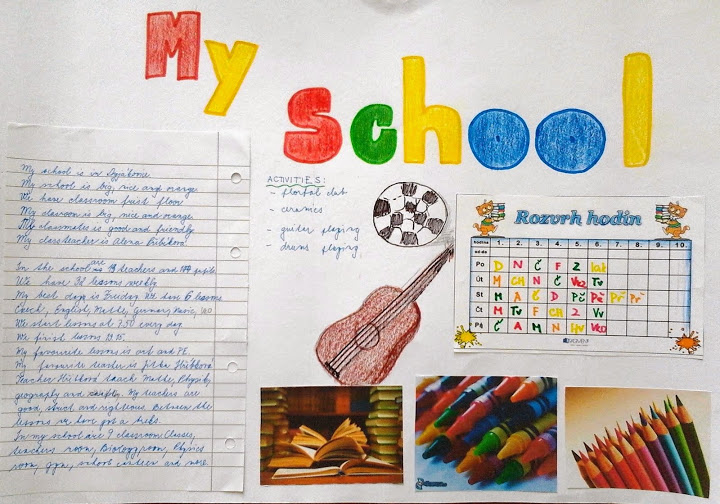 My school
My school is in
My school is big, nice and orange
We have classroom first floor
My clasroom is big, nice and orange.
My classmates is good and friendly
My classteacher is Alena
In the school are 19 teachers and pupils.
We have lessons weekly
My best day is We have 6 lessons
Czech, English, Maths, Germany, Music,
We start lessons at 7.50 every day
We finist lessons 13.15.
My favourite lessons is art and PE.
My favourite teacher is Jitka
Teacher teach Maths, Physics,
geography and My teachers are
good, strict and righteous. Between the
lessons we have got a
In my school are 9 classroom Classes,
teachers room, Biology room, Physics
room, gym, school canteen and more.
ACTIVITIES:
- florbal club
- ceramics
- guitar playing
- drums playing
Rozvrh hodin
hodina 1. 2. 3. 4. 5. 6. 7. 8. 9. 10.
od-do
Po D N Č F Z
Út M CH N Č Vkz Tv
St M A Č D Pč Pč Př Př
Čt M Tv F CH Z Vv
Pá Č A M N Hv VkO